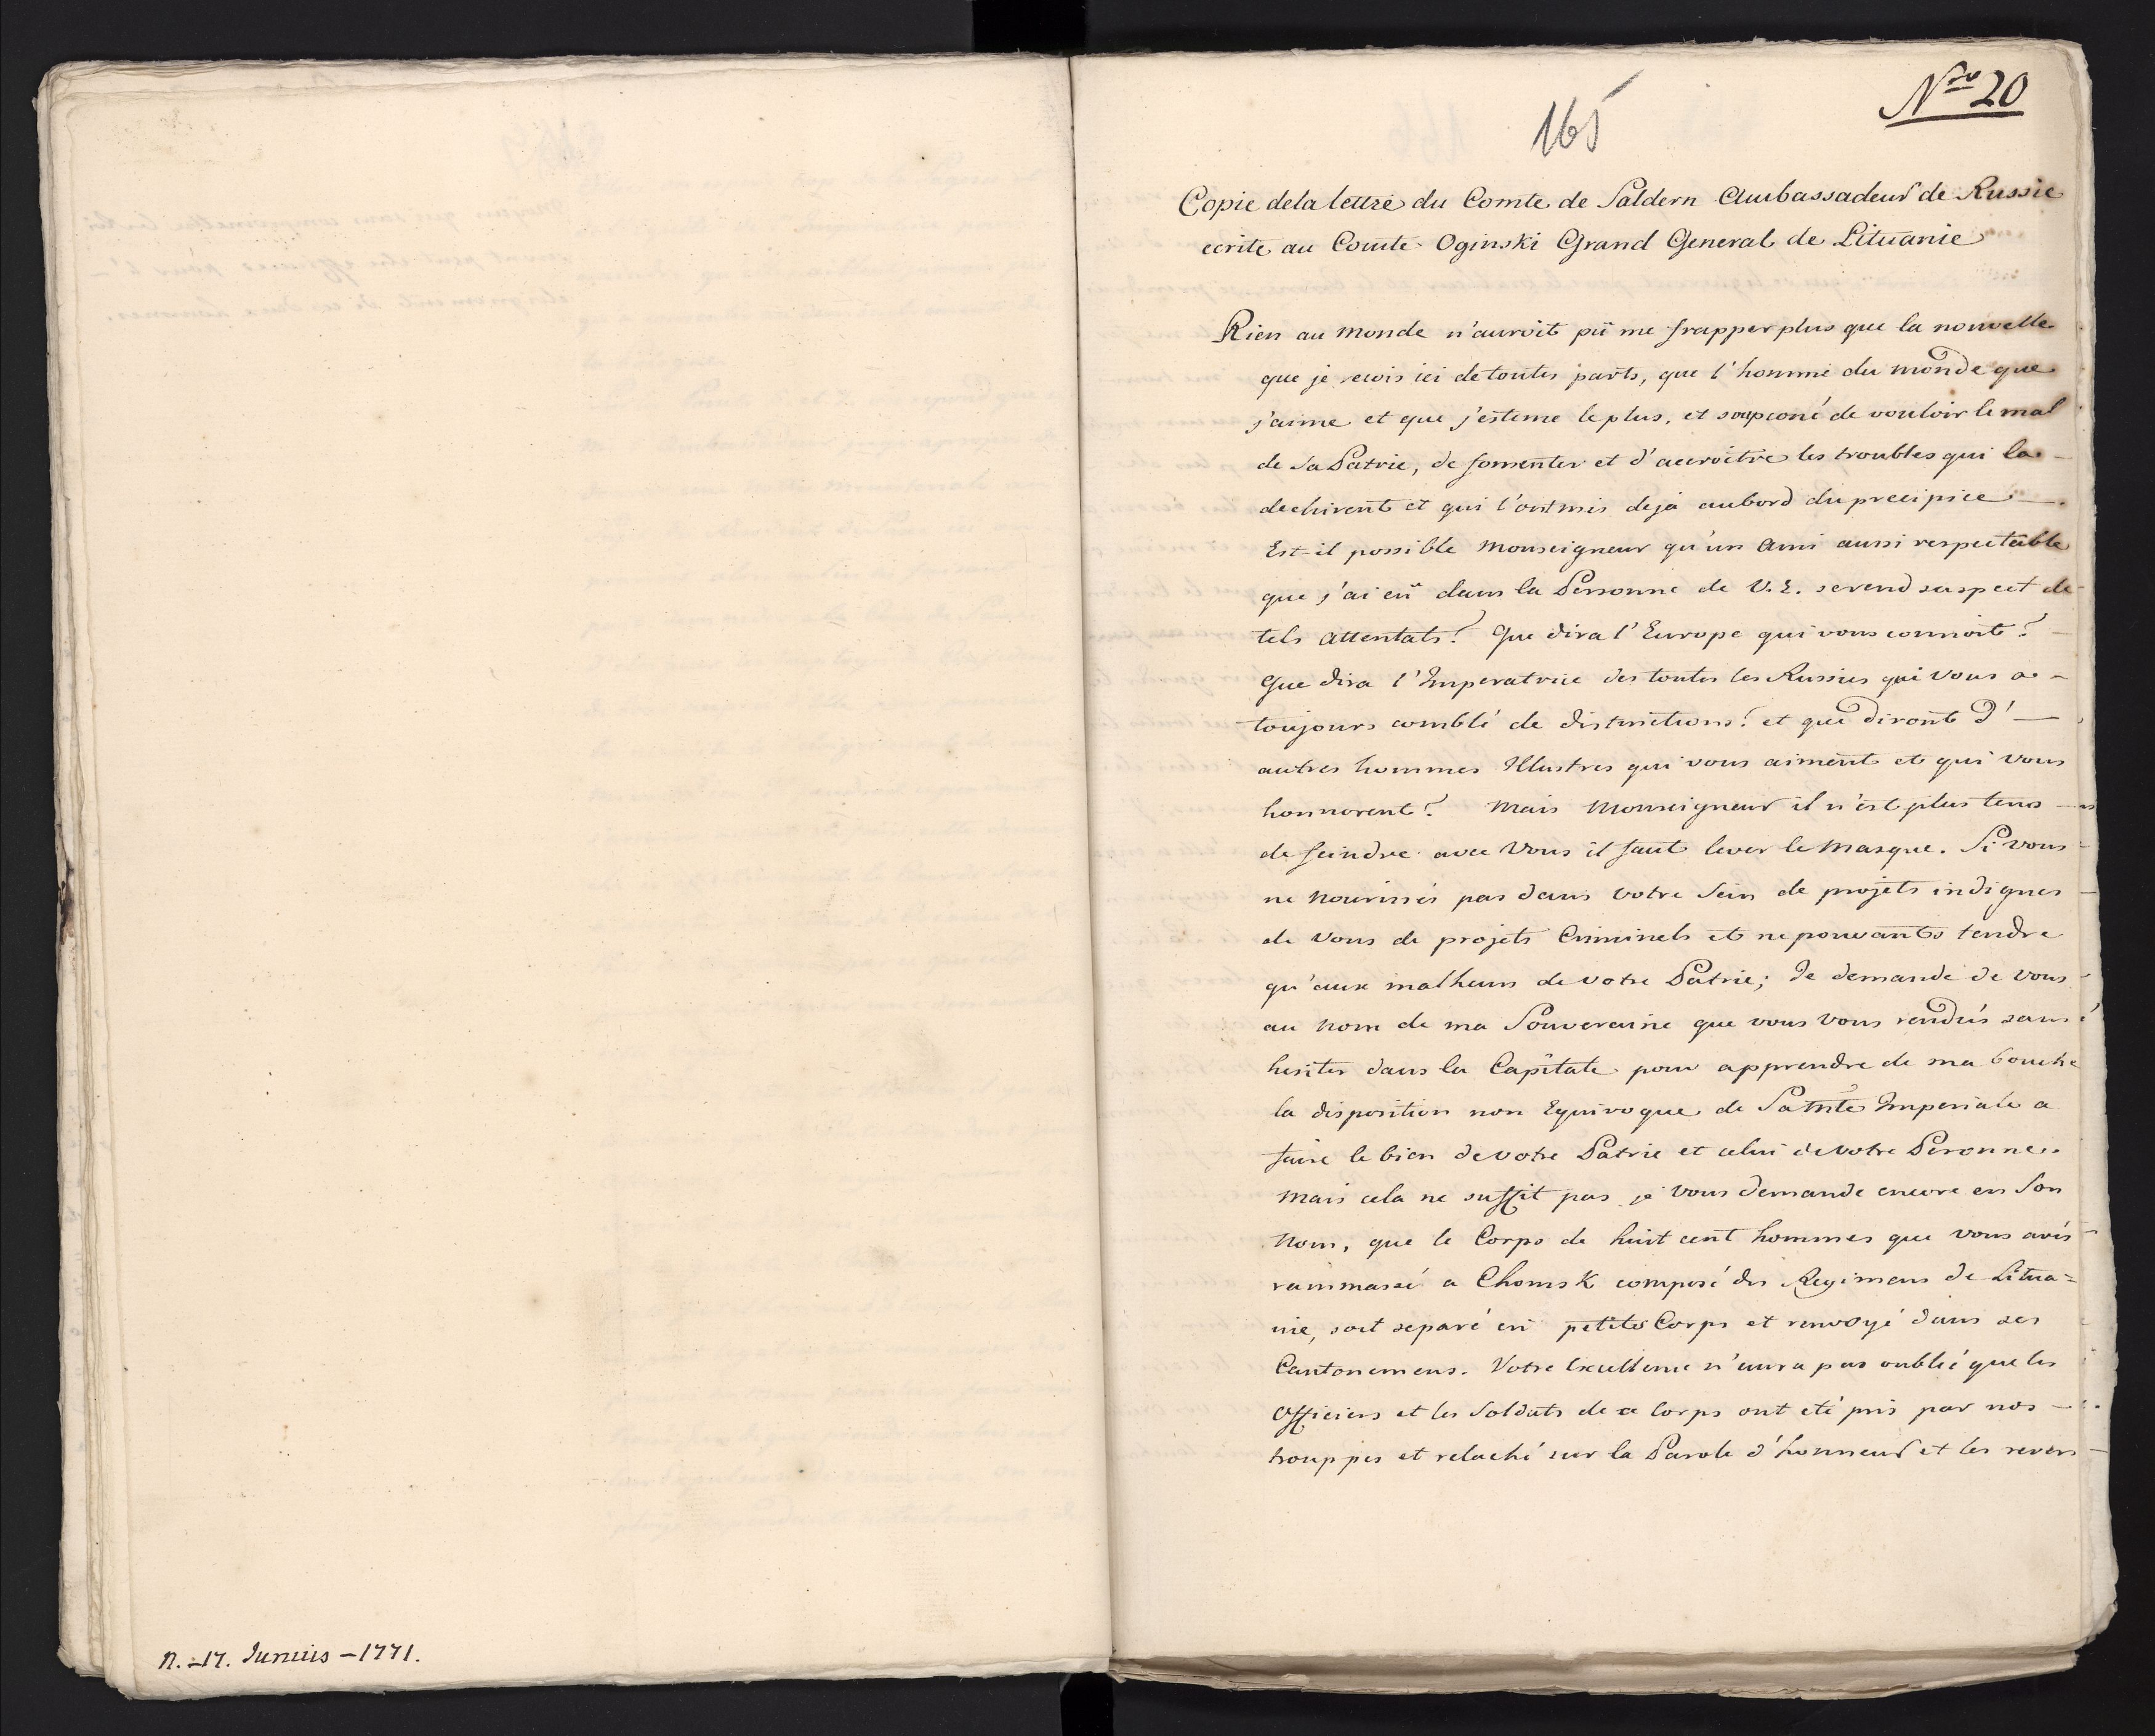 n. - 17. Junius - 1771.
Nro 20
165
Copie dela lettre du Comte de Saldern Ambassadeur de Russie
ecrite au Comte Oginski Grand General de Lituanie
Rien au monde n'auroit pû me frapper plus que la nouvelle
que je recois ici de toutes parts, que l'homme du monde que
j'aime et que j'esteme le plus, et soupconé de vouloir le mal
de sa Patrie, de fomenter et d'accroitre les troubles qui la -
dechirent et qui l'ont mis deja au bord du precipice —.
Est-il possible Monseigneur qu'un Ami aussi respectable
que j'ai eû dans la Personne de V. E. se rend suspect de
tels attentats? Que dira l'Europe qui vous connoit? -
Que dira l'Imperatrice des toutes les Russies qui vous a -
toujours comblé de distinctions? et que diront d' —
autres hommes Illustres qui vous aiment et qui vous
honnorent? Mais Monseigneur il n'est plus tems -
de feindre avec Vous il faut lever le Masque. Si vous
ne nourissés pas dans votre Sein de projets indignes
de Vous de projets Criminels et ne pouvants tendre
qu'aux malheurs de votre Patrie; Je demande de Vous
au nom de ma Souveraine que vous Vous rendiés sans
hesiter dans la Capitale pour apprendre de ma bouche
la disposition non Equivoque de Sa Mté Imperiale a
faire le bien de votre Patrie et celui de votre Personne.
Mais cela ne suffit pas je Vous demande encore en Son
Nom, que le Corps de huit cent hommes que vous avés
rammassé a Chomsk composé des Regimens de Litua=
nie, soit separé en petits Corps et renvoyé dans ses
Cantonemens. Votre Excellence n'aura pas oublié que les
Officiers et les Soldats de ce Corps ont eté pris par nos -
trouppes et relaché sur la Parole d'honneur et les revers -